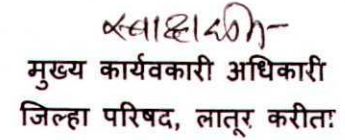 स्वाक्षरीत-
मुख्य कार्यवकारी अधिकारी
जिल्हा परिषद, लातूर करीता